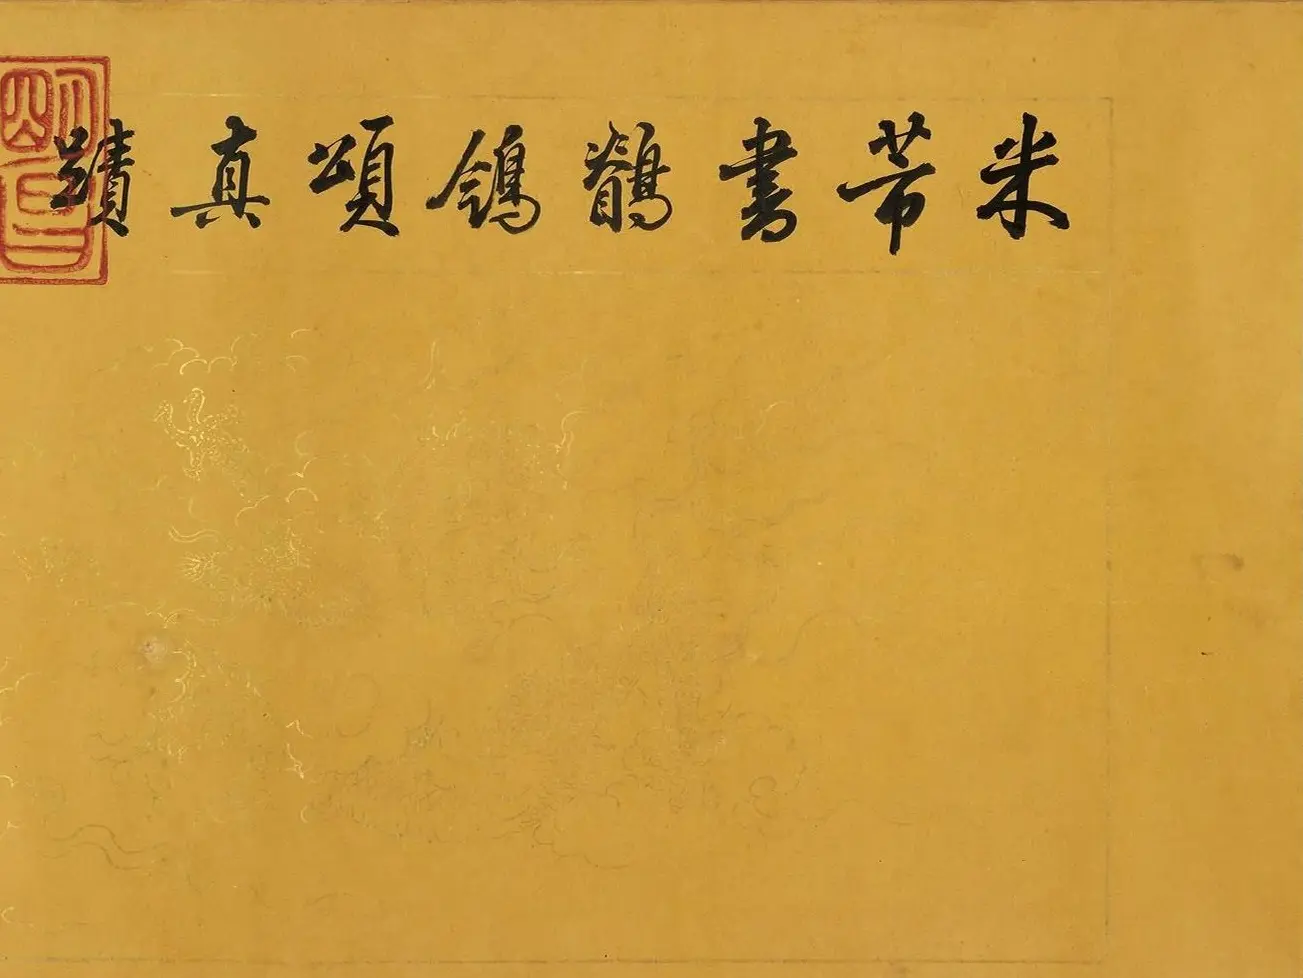 米芾書鶺鴒頌真蹟
明昌